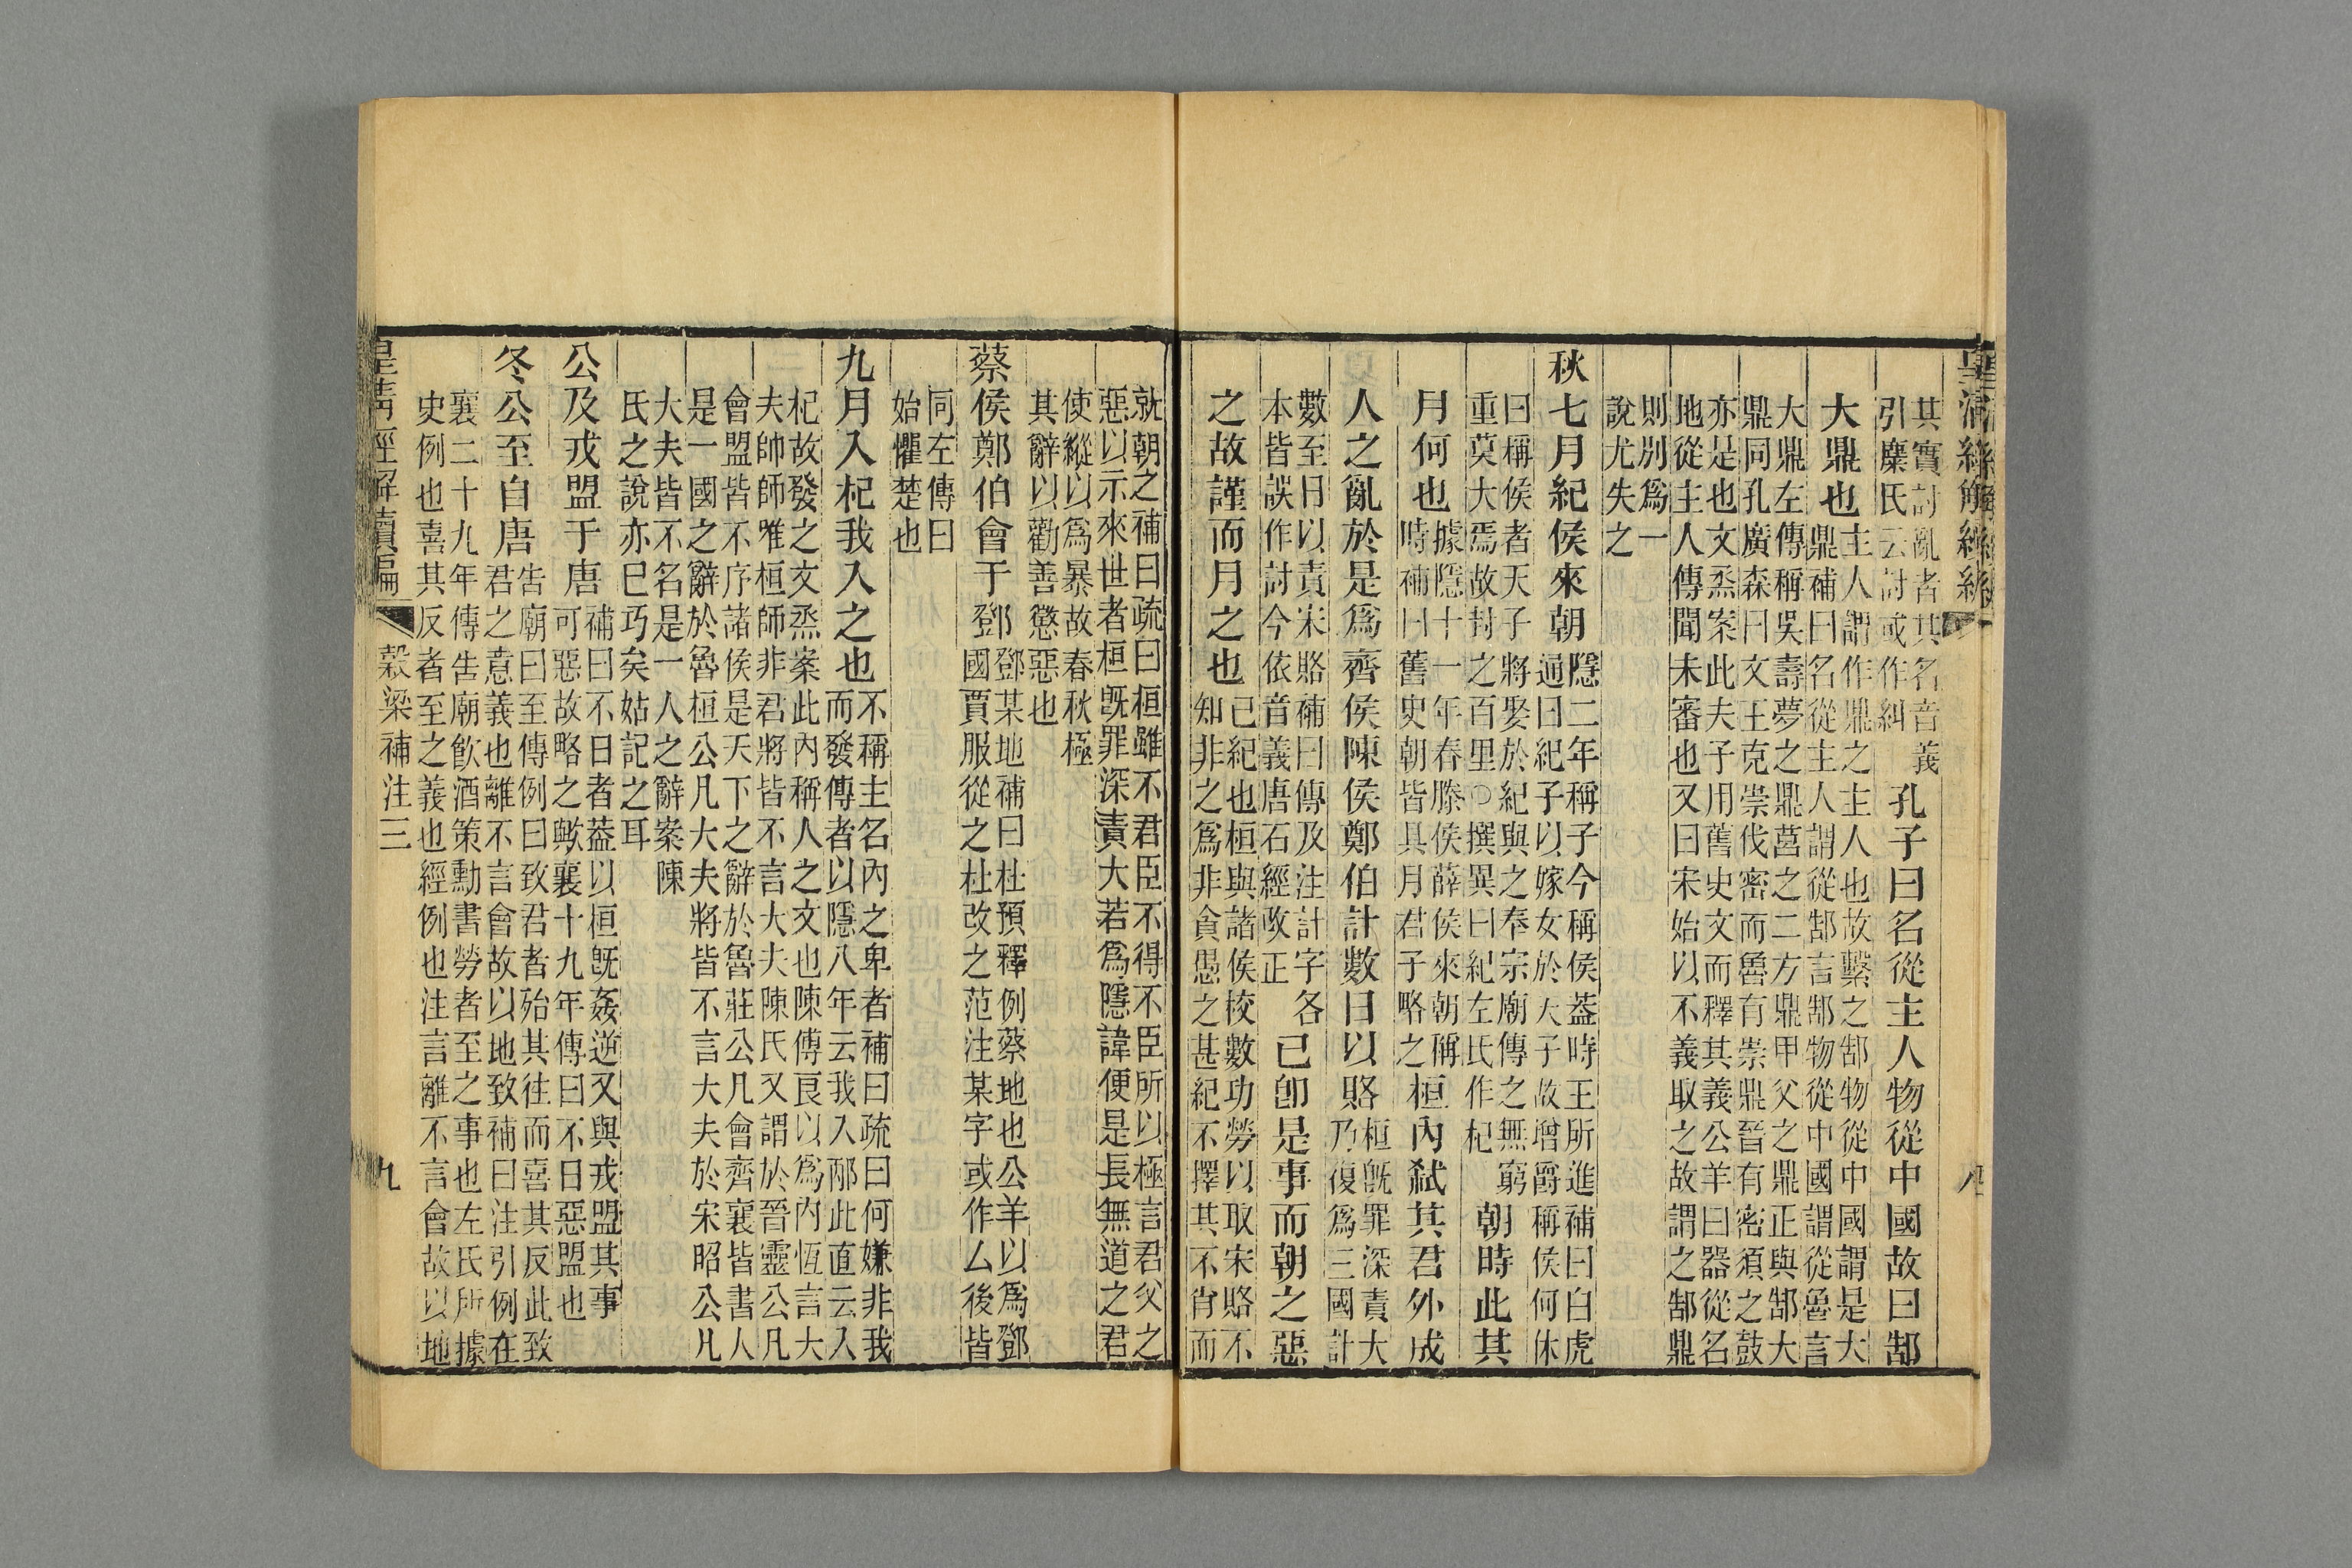 其實討亂者其名音義
引麋氏云討或作糾
孔子曰名從主人物從中國故曰郜
大鼎也
主人謂作鼎之主人也故繫之郜物從中國謂是大
鼎補曰名從主人謂從郜言郜物從中國謂從魯言大
大鼎左傳稱吳壽夢之鼎莒之二方鼎甲父之鼎正與郜大
鼎同孔廣森曰文王克崇伐密而魯有崇鼎晉有密須之鼓
亦是也文烝案此夫子用舊史文而釋其義公羊曰器從名
地從主人傳聞未審也又曰宋始以不義取之故謂之郜鼎
則別爲一
說尤失之
秋七月紀侯來朝
隱二年稱子今稱侯葢時王所進補曰白虎
通曰紀子以嫁女於天子故增爵稱侯何休
曰稱侯者天子將娶於紀與之奉宗廟傳之無窮
重莫大焉故封之百里○撰異曰紀左氏作杞
朝時此其
月何也
據隱十一年春滕侯薛侯來朝稱
時補曰舊史朝皆具月君子略之
桓內弒其君外成
人之亂於是爲齊侯陳侯鄭伯計數日以賂
桓旣罪深責大
乃復爲三國計
數至日以責宋賂補曰傳及注計字各
本皆誤作討今依音義唐石經改正
已卽是事而朝之惡
之故謹而月之也
已紀也桓與諸侯校數功勞以取宋賂不
知非之爲非貪愚之甚紀不擇其不肖而
就朝之補曰疏曰桓雖不君臣不得不臣所以極言君父之
惡以示來世者桓旣罪深責大若爲隱諱便是長無道之君
使縱以爲暴故春秋極
其辭以勸善懲惡也
蔡侯鄭伯會于鄧
鄧某地補曰杜預釋例蔡地也公羊以爲鄧
國賈服從之杜改之范注某字或作厶後皆
同左傳曰
始懼楚也
九月入杞我入之也
不稱主名內之卑者補曰疏曰何嫌非我
而發傳者以隱八年云我入邴此直云入
杞故發之文烝案此內稱人之文也陳傅良以爲內恆言大
夫帥師唯桓師非君將皆不言大夫陳氏又謂於晉靈公凡
會盟皆不序諸侯是天下之辭於魯莊公凡會齊襄皆書人
是一國之辭於魯桓公凡大夫將皆不言大夫於宋昭公凡
大夫皆不名是一人之辭案陳
氏之說亦已巧矣姑記之耳
公及戎盟于唐
補曰不日者葢以桓旣姦逆又與戎盟其事
可惡故略之歟襄十九年傳曰不日惡盟也
冬公至自唐
告廟曰至傳例曰致君者殆其往而喜其反此致
君之意義也離不言會故以地致補曰注引例在
襄二十九年傳告廟飮酒策勳書勞者至之事也左氏所據
史例也喜其反者至之義也經例也注言離不言會故以地
皇清經解續編
穀梁補注三
九